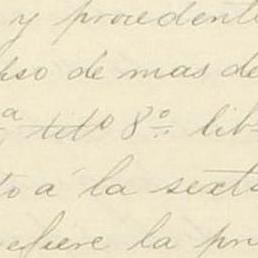 y procedent
so de mas de
a, titº 8º lib
to á la sexta
efiere la pr